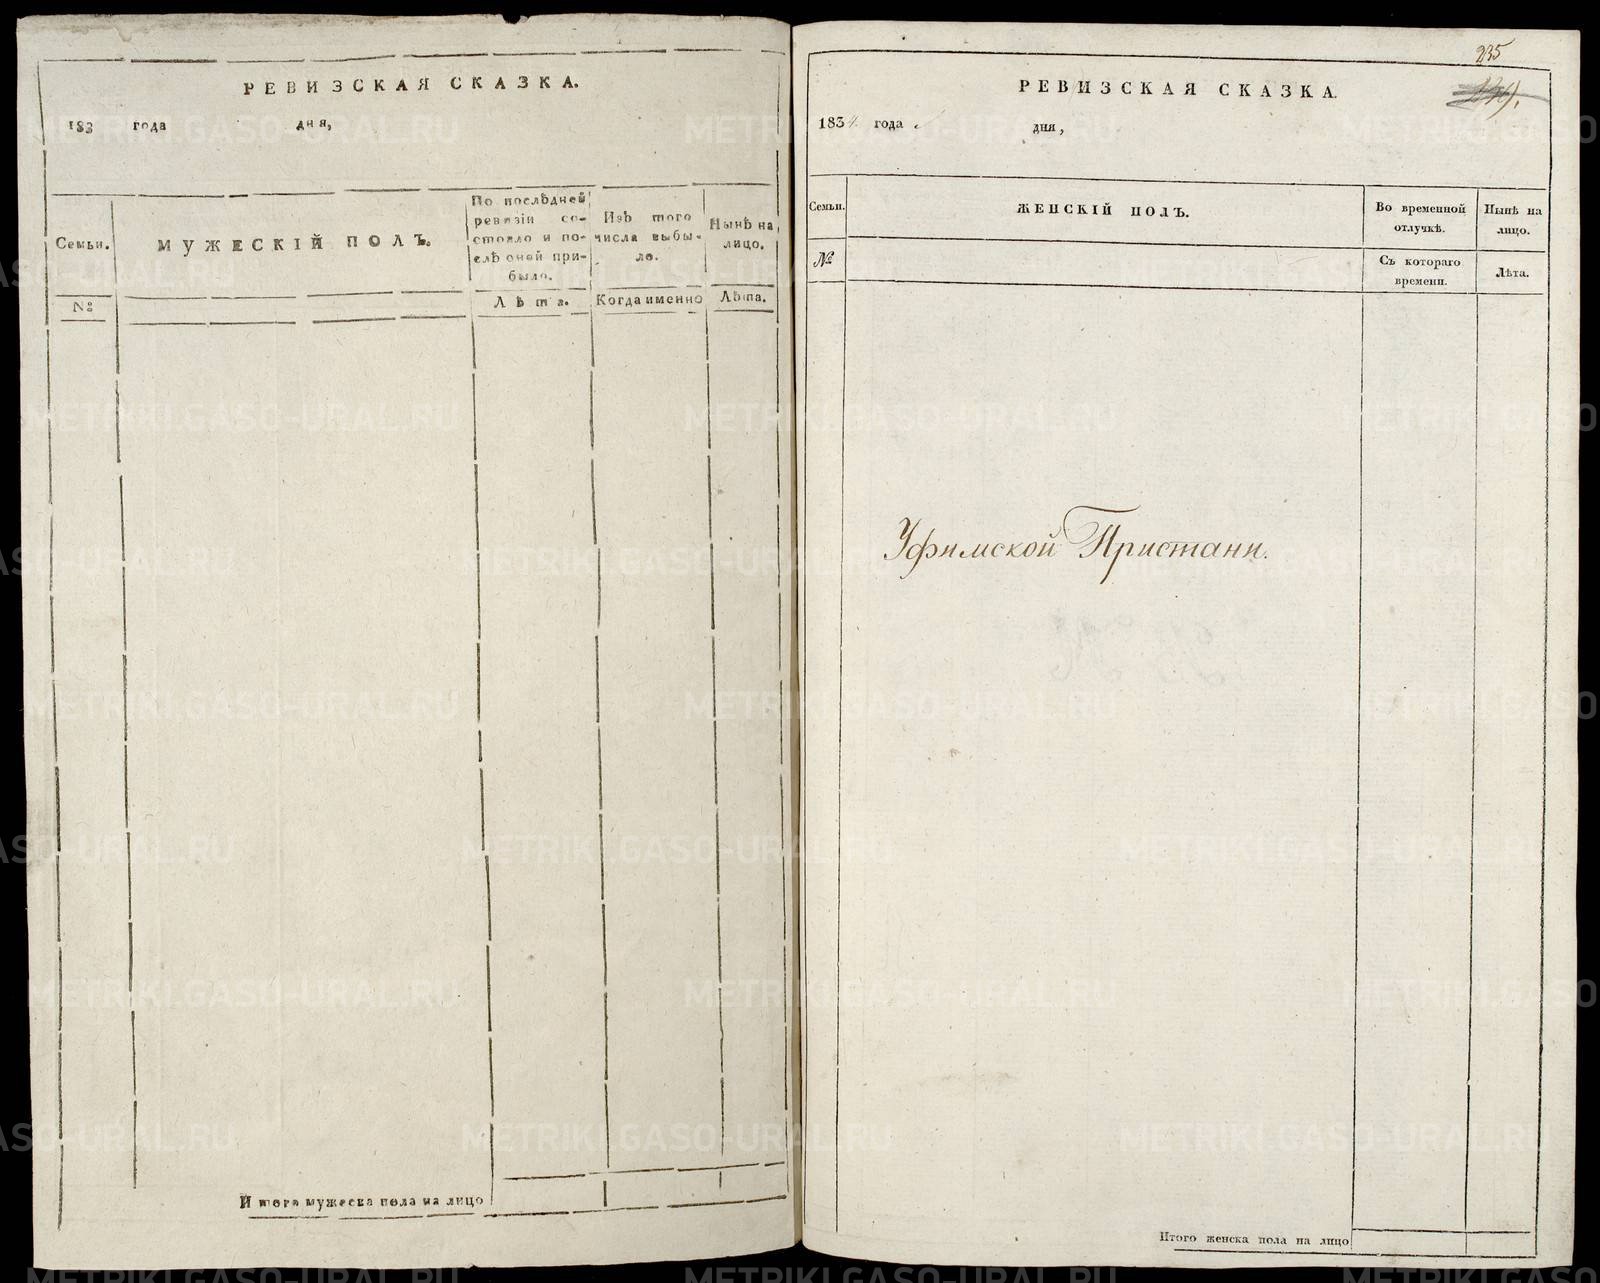 РЕВИЗСКАЯ СКАЗКА.
183 года дня,
Семьи.
МУЖЕСКІЙ ПОЛЪ.
По послѣдней
ревизіи со-
стояло и по-
слѣ оной при-
было.
Изъ того
числа выбы-
ло.
Нынѣ на
лицо.
№
Лѣта.
Когда именно
Лѣта.
Итого мужеска пола на лицо
235
РЕВИЗСКАЯ СКАЗКА.
1834. года дня,
Семьи.
ЖЕНСКІЙ ПОЛЪ.
Во временной
отлучкѣ.
Нынѣ на
лицо.
№
Съ котораго
времени.
Лѣта.
Уфимской Пристани.
Итого женска пола на лицо
METRIKI.GASO-URAL.RU